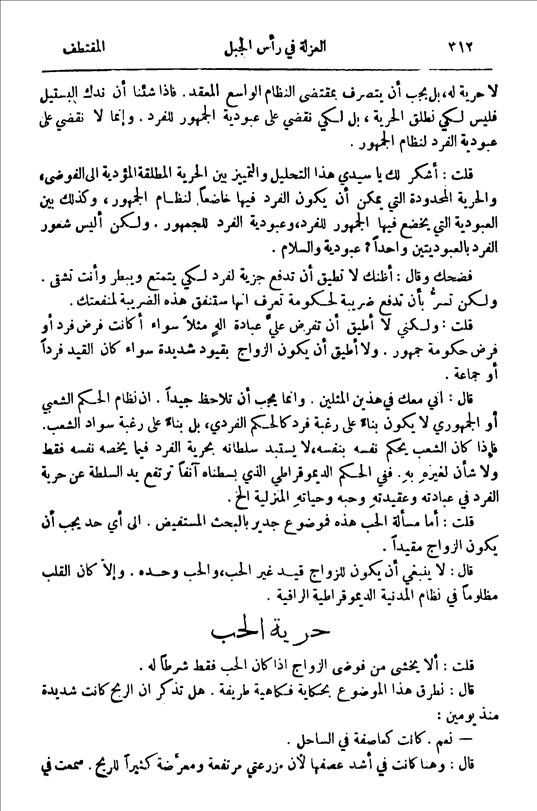 ٣١٢ العزلة في رأس الجبل المقتطف
لا حرية له، بل يجب أن يتصرف بمقتضى النظام الواسع المعقد. فاذا شئنا أن ندك البستيل
فليس لكي نطلق الحرية، بل لكي نقضي على عبودية الجمهور للفرد. وإنما لا نقضي على
عبودية الفرد لنظام الجمهور.
قلت: أشكر لك يا سيدي هذا التحليل والتمييز بين الحرية المطلقة المؤدية الى الفوضى،
والحرية المحدودة التي يمكن أن يكون الفرد فيها خاضعاً لنظام الجمهور، وكذلك بين
العبودية التي يخضع فيها الجمهور للفرد، وعبودية الفرد للجمهور. ولكن أليس شعور
الفرد بالعبوديتين واحداً؟ عبودية والسلام.
فضحك وقال: أظنك لا تطيق أن تدفع جزية لفرد لكي يتمتع ويبطر وأنت تشقى.
ولكن تسرُّ بأن تدفع ضريبة لحكومة تعرف انها ستنفق هذه الضريبة لمنفعتك.
قلت: ولكني لا أطيق أن تفرض عليَّ عبادة الهٍ مثلاً سواء أكانت فرض فرد أو
فرض حكومة جمهور. ولا أطيق أن يكون الزواج بقيود شديدة سواء كان القيد فرداً
أو جماعة.
قال: اني معك في هذين المثلين. وانما يجب أن تلاحظ جيداً. ان نظام الحكم الشعبي
أو الجمهوري لا يكون بناءً على رغبة فرد كالحكم الفردي، بل بناءً على رغبة سواد الشعب.
فإذا كان الشعب يحكم نفسه بنفسه، لا يستبد سلطانه بحرية الفرد فيما يخصه نفسه فقط
ولا شأن لغيرهِ بهِ. ففي الحكم الديموقراطي الذي بسطناه آنفاً ترتفع يد السلطة عن حرية
الفرد في عبادته وعقيدتهِ وحبه وحياتهِ المنزلية الخ.
قلت: أما مسألة الحب هذه فموضوع جدير بالبحث المستفيض. الى أي حد يجب أن
يكون الزواج مقيداً.
قال: لا ينبغي أن يكون للزواج قيد غير الحب، والحب وحده. وإلاَّ كان القلب
مظلوماً في نظام المدنية الديموقراطية الراقية.
حرية الحب
قلت: ألا يخشى من فوضى الزواج اذا كان الحب فقط شرطاً له.
قال: نطرق هذا الموضوع بحكاية فكاهية طريفة. هل تذكر ان الريح كانت شديدة
منذ يومين:
— نعم. كانت كعاصفة في الساحل.
قال: وهنا كانت في أشد عصفها لأن مزرعتي مرتفعة ومعرَّضة كثيراً للريح. سمعت في